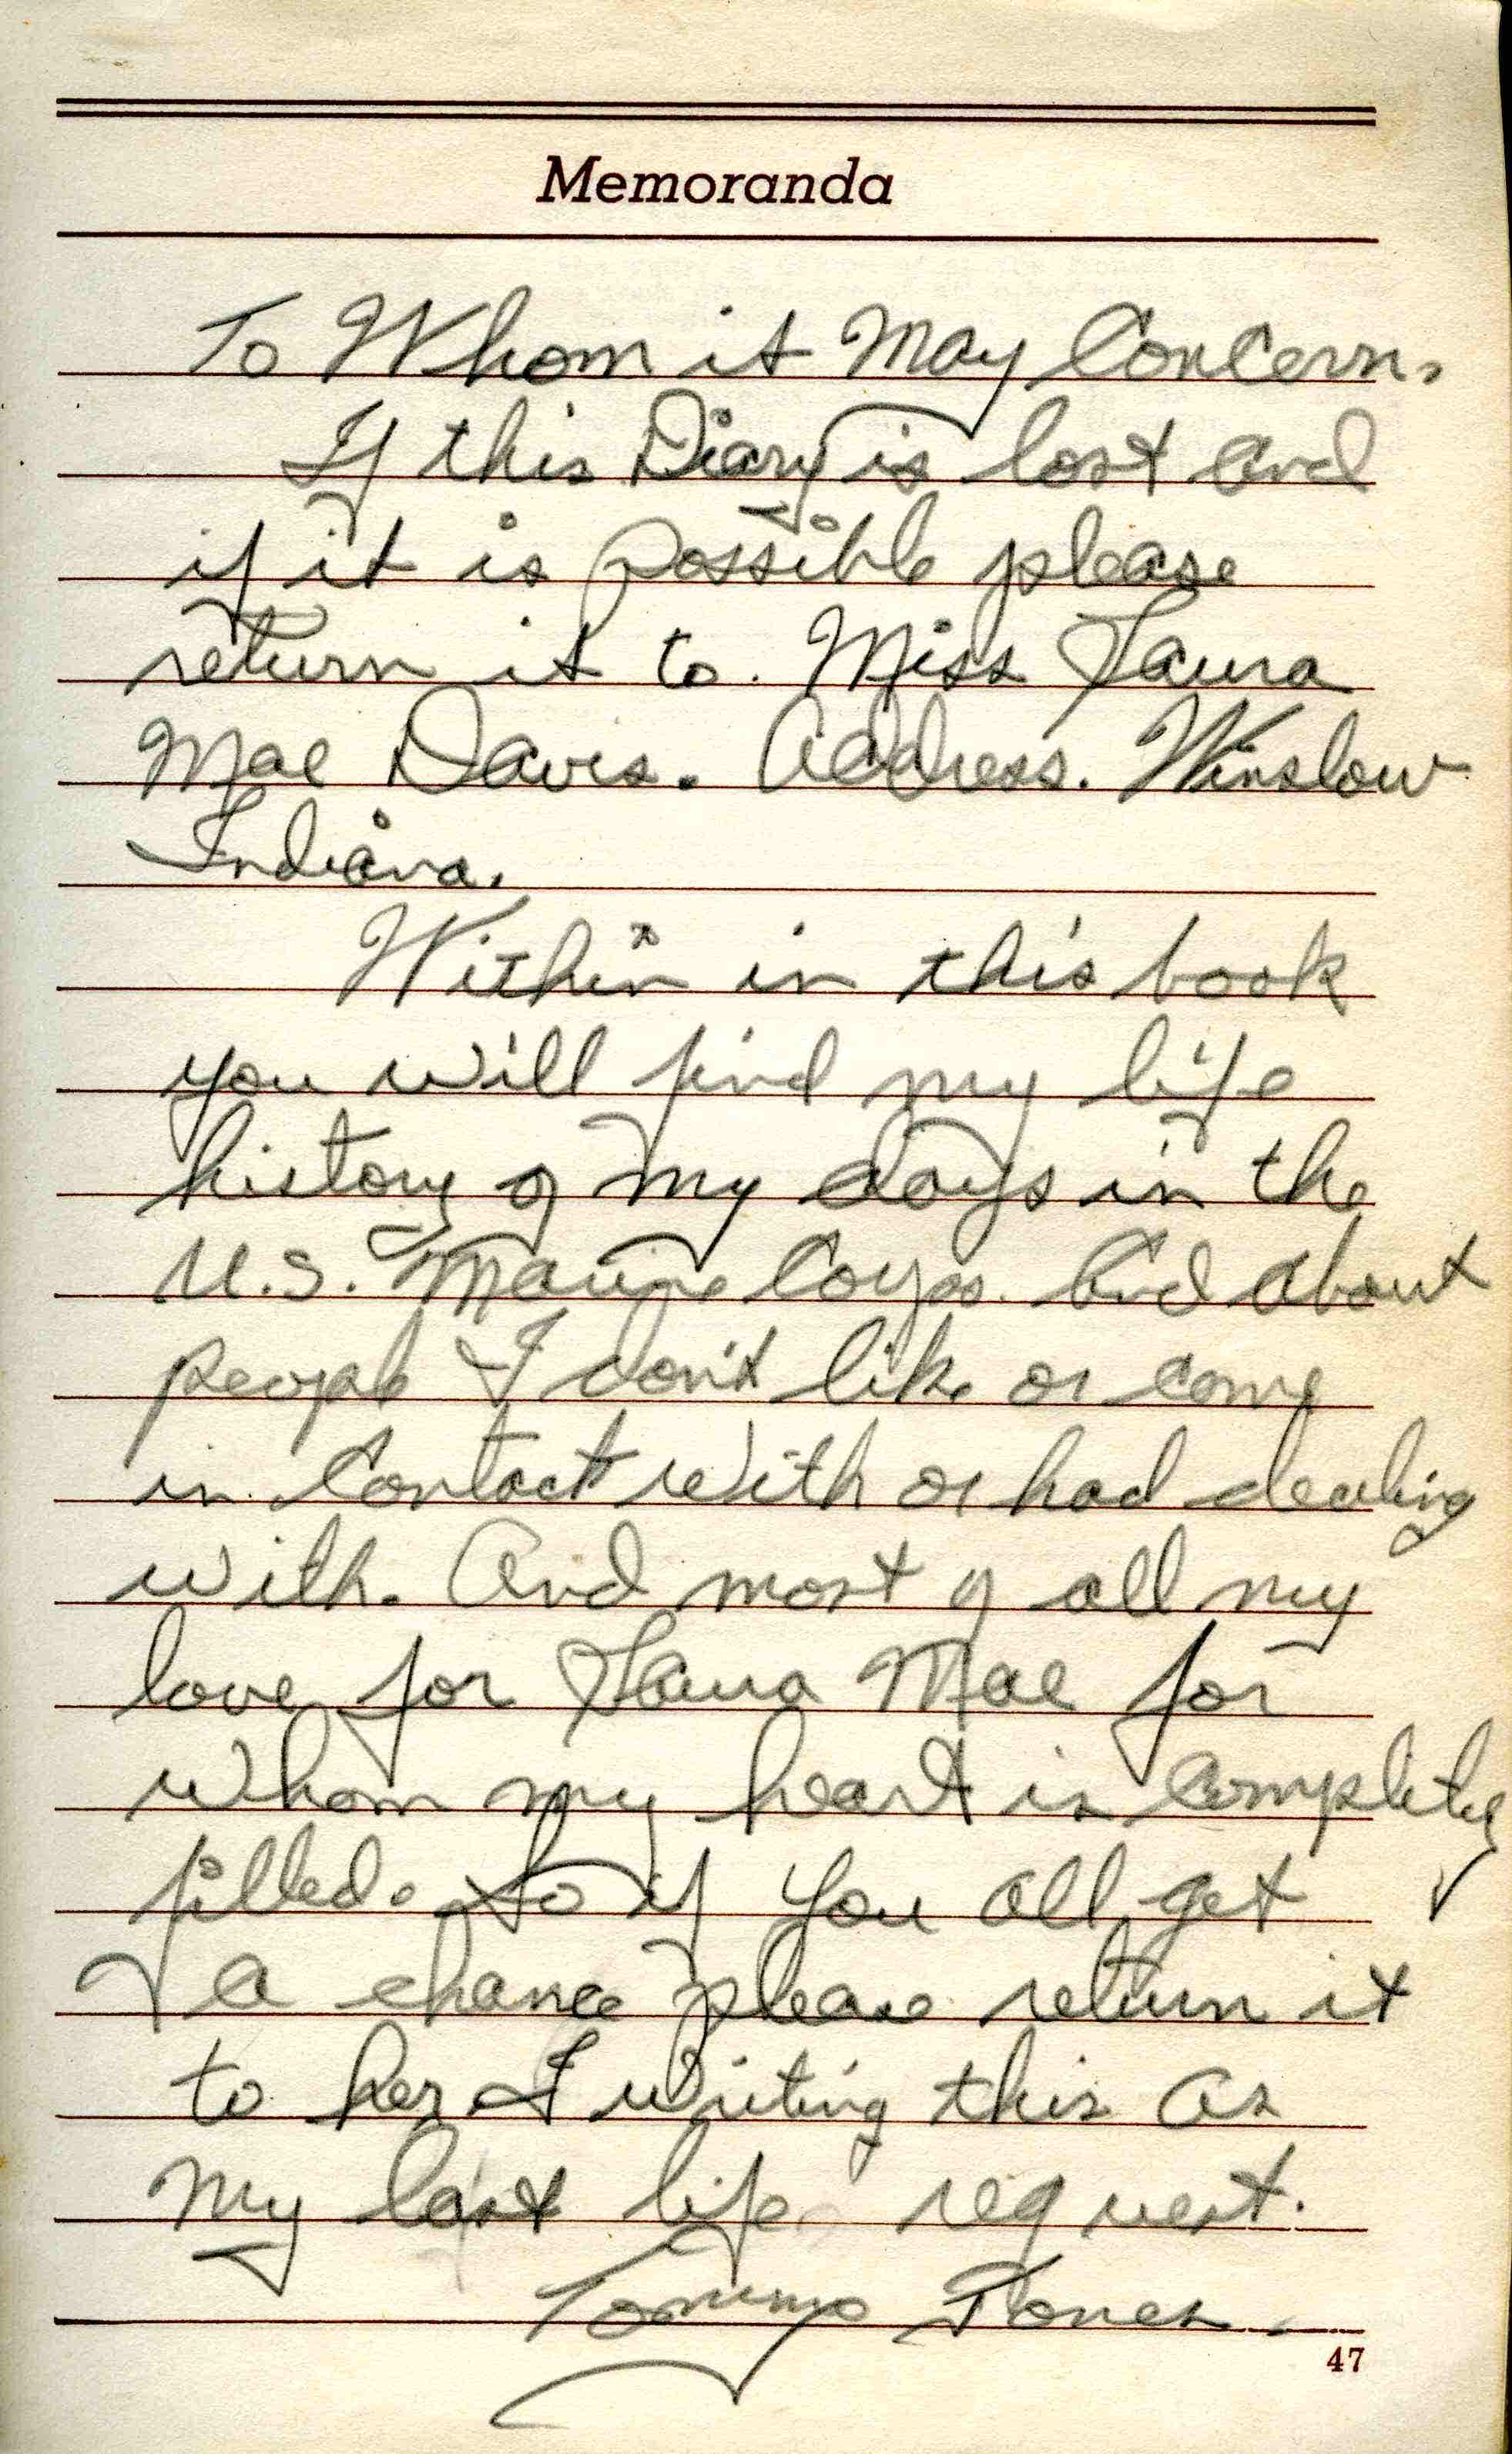 Memoranda
To Whom it May Concern.
If this Diary is lost and
if it is possible please
return it to. Miss Laura
Mae Davis. Address. Winslow
Indiana.
Within in this book
you will find my life
history of my days in the
U.S. Marine Corps. And about
people I don't like or come
in contact with or had dealing
with. And most of all my
love for Laura Mae for
whom my heart is completely
filled. So if you all get
a chance please return it
to her I writing this as
My last life request.
Tommy Jones.
47